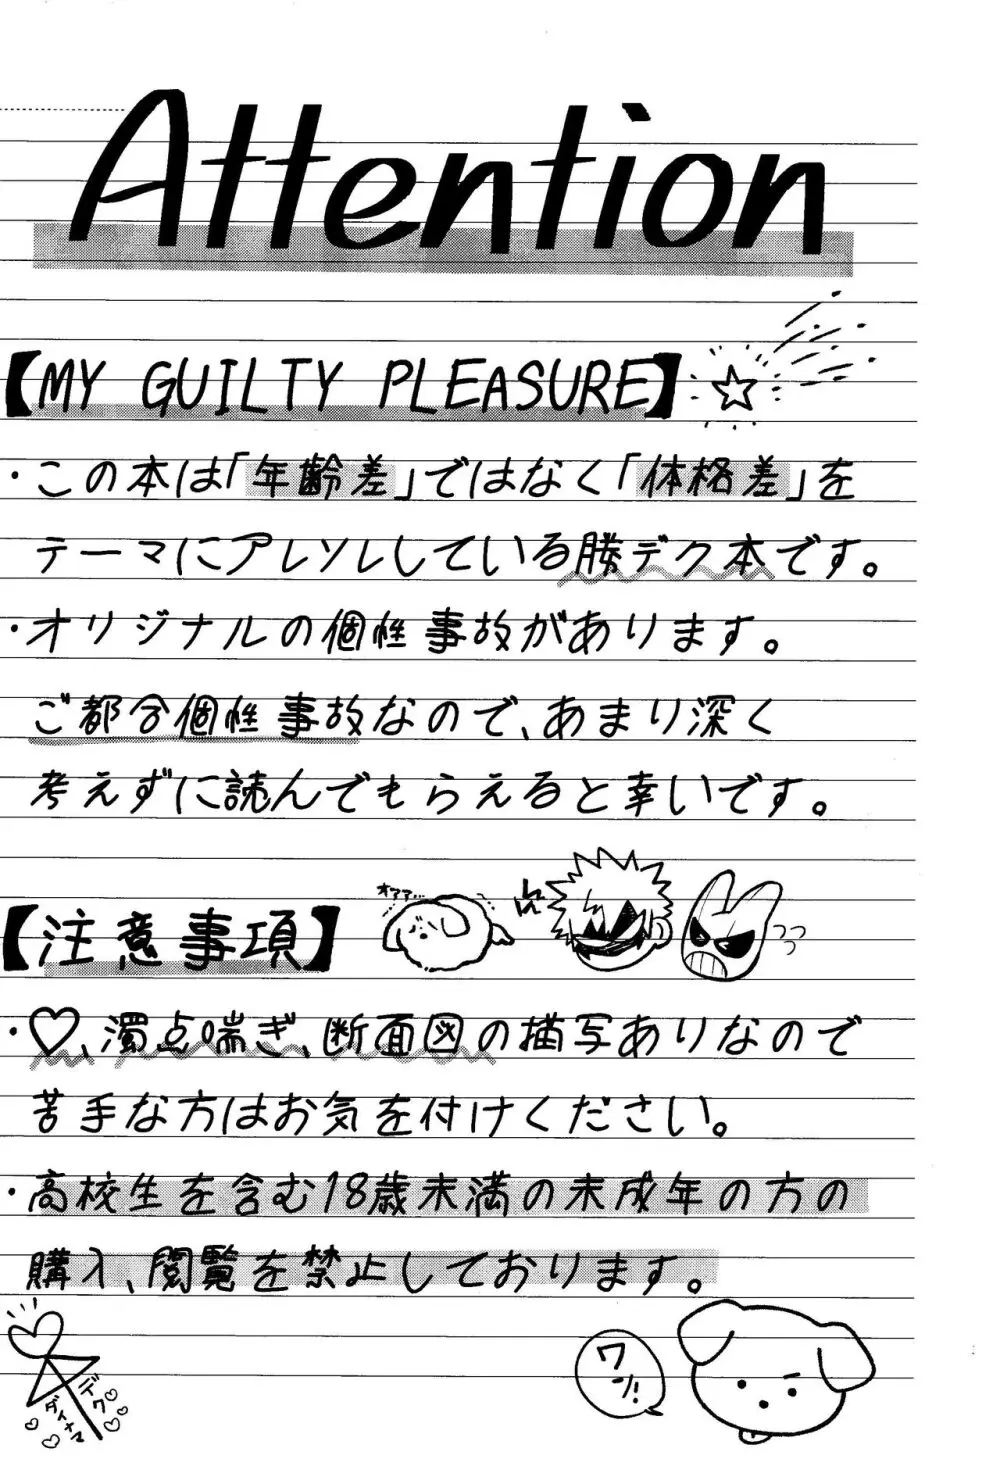 Attention
【MY GUILTY PLEASURE】
・この本は「年齢差」ではなく「体格差」を
テーマにアレソレしている勝デク本です。
・オリジナルの個性事故があります。
ご都合個性事故なので、あまり深く
考えずに読んでもらえると幸いです。
【注意事項】
オアアア…
・♡、濁点喘ぎ、断面図の描写ありなので
苦手な方はお気を付けください。
・高校生を含む18歳未満の未成年の方の
購入、閲覧を禁止しております。
ワン!
デク
ダイナマ